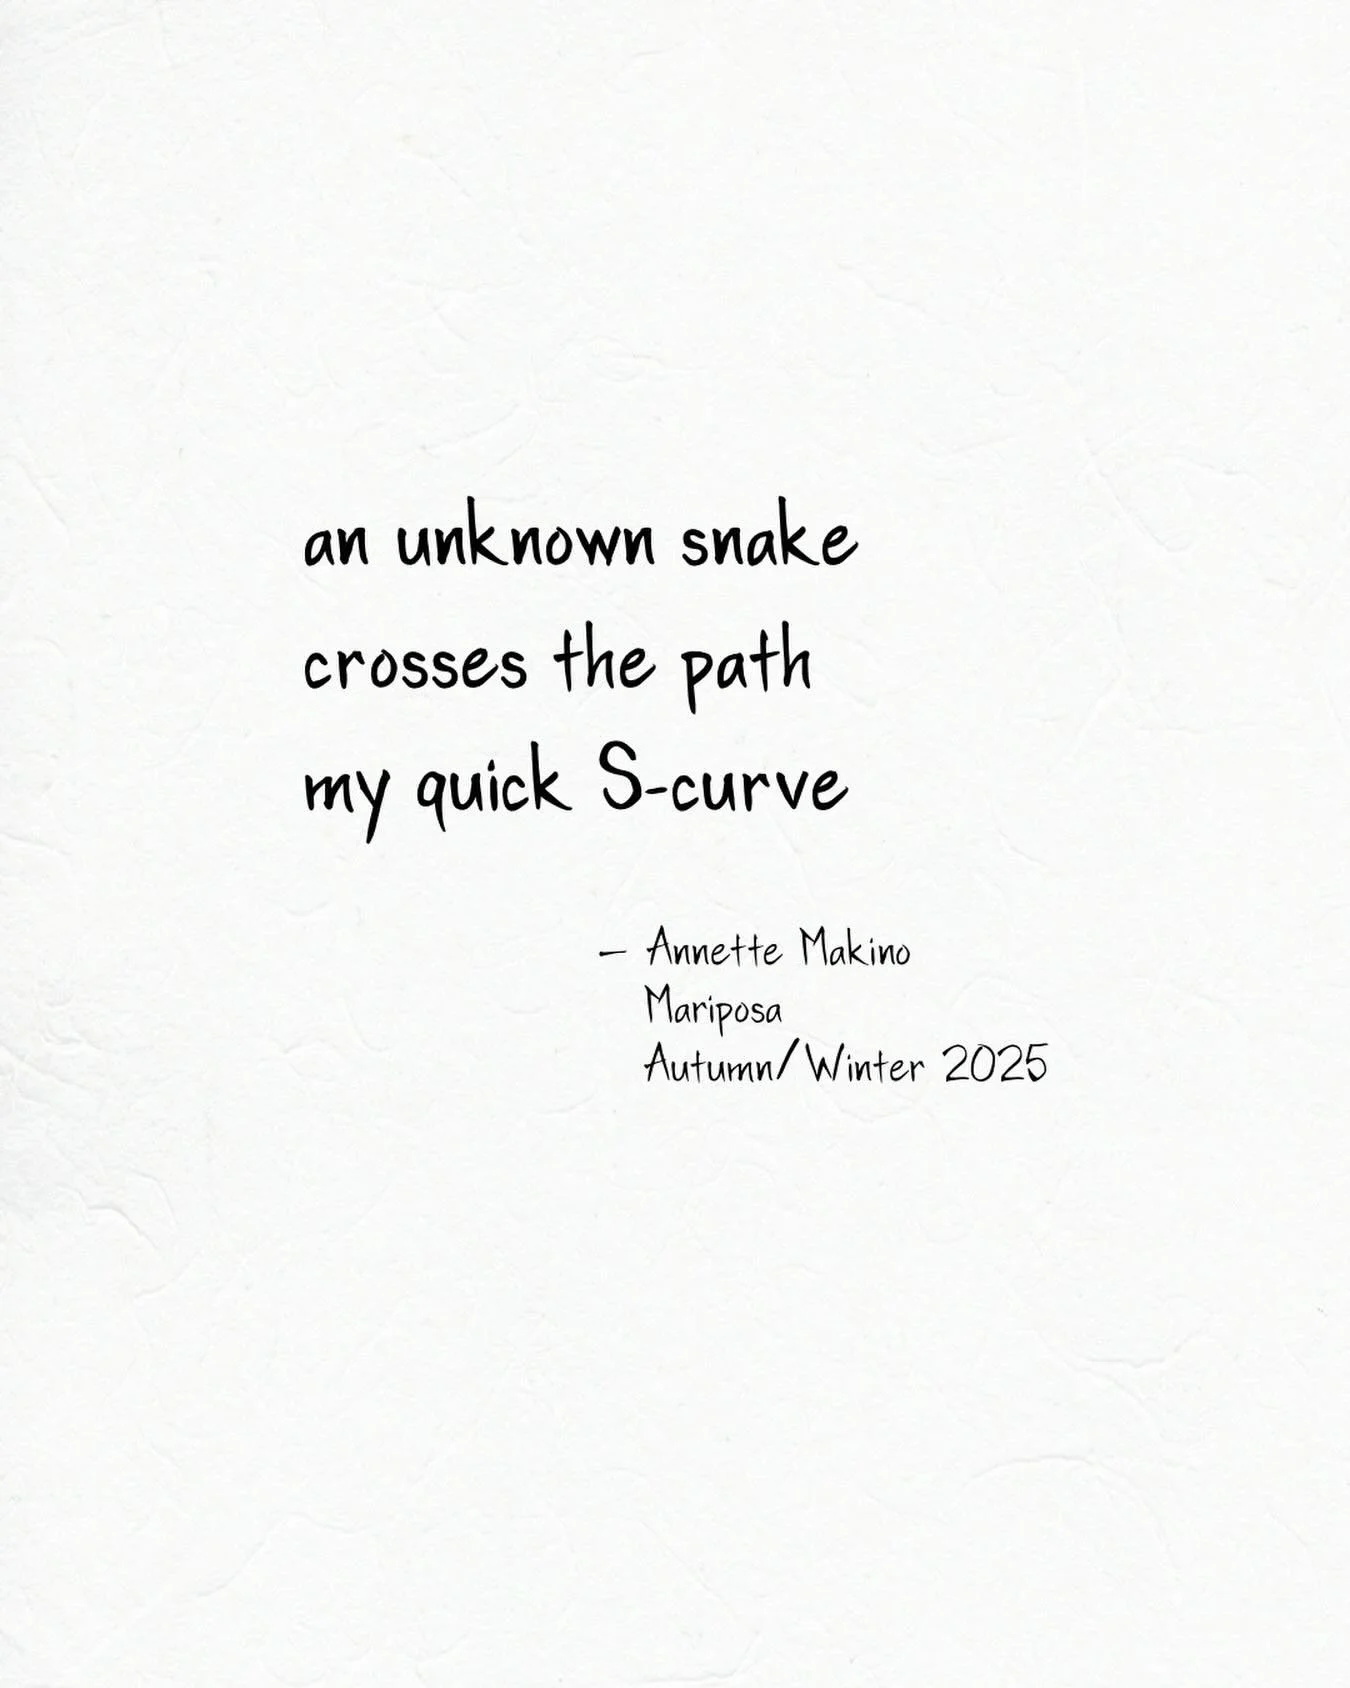 an unknown snake
crosses the path
my quick S-curve
— Annette Makino
Mariposa
Autumn/Winter 2025